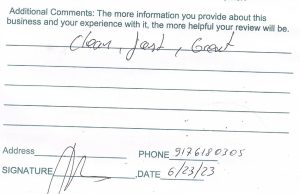 Additional Comments: The more information you provide about this
business and your experience with it, the more helpful your review will be.
Clean, fast, Great
Address
PHONE 9176180305
SIGNATURE
DATE 6/23/23